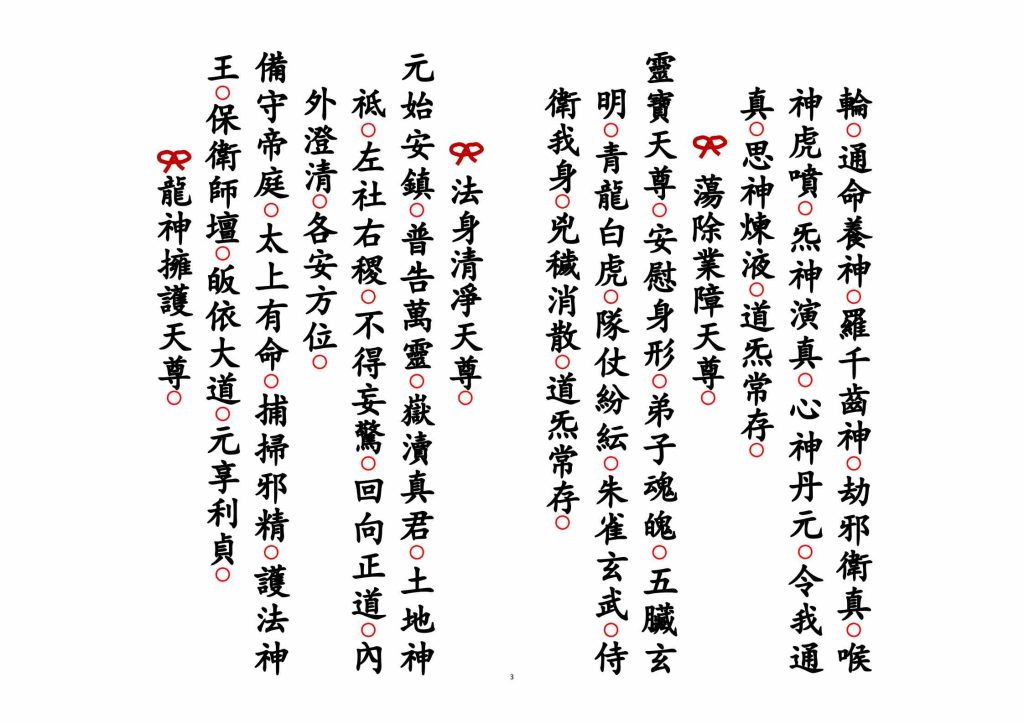 輪○通命養神○羅千齒神○劫邪衛真○喉
神虎噴○炁神演真○心神丹元○令我通
真○思神煉液○道炁常存○
蕩除業障天尊○
靈寶天尊○安慰身形○弟子魂魄○五臟玄
明○青龍白虎○隊仗紛紜○朱雀玄武○侍
衛我身○兇穢消散○道炁常存○
法身清淨天尊○
元始安鎮○普告萬靈○嶽瀆真君○土地神
祇○左社右稷○不得妄驚○回向正道○內
外澄清○各安方位○
備守帝庭○太上有命○捕掃邪精○護法神
王○保衛師壇○皈依大道○元享利貞○
龍神擁護天尊○
3